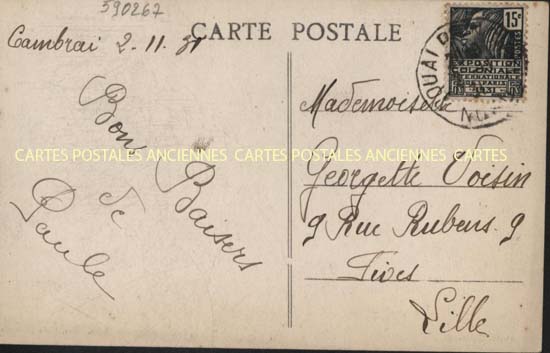 590267
CARTE POSTALE
Cambrai 2-11-31
Bons
Baisers
de
Paule
Mademoiselle
Georgette Voisin
9 Rue Rubens 9
Fives
Lille
15c
EXPOSITION
COLONIALE
INTERNATIONALE
PARIS
1931
POSTES
DOUAI
CARTES POSTALES ANCIENNES CARTES POSTALES ANCIENNES CARTES POSTALES ANCIENNES